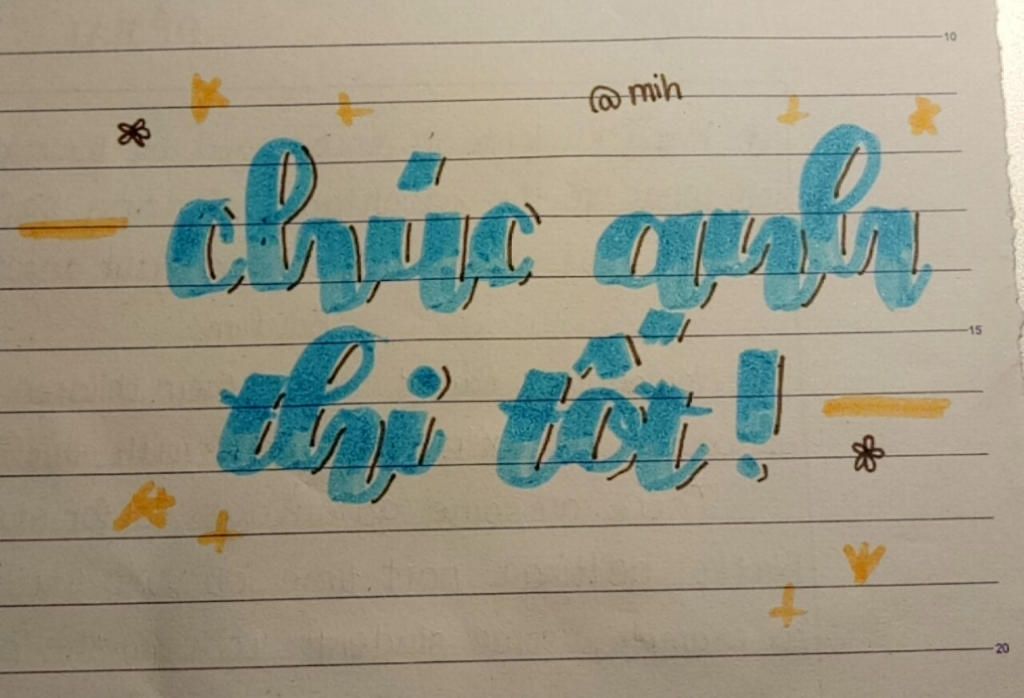 10
@mih
chúc anh
15
thi tốt!
20